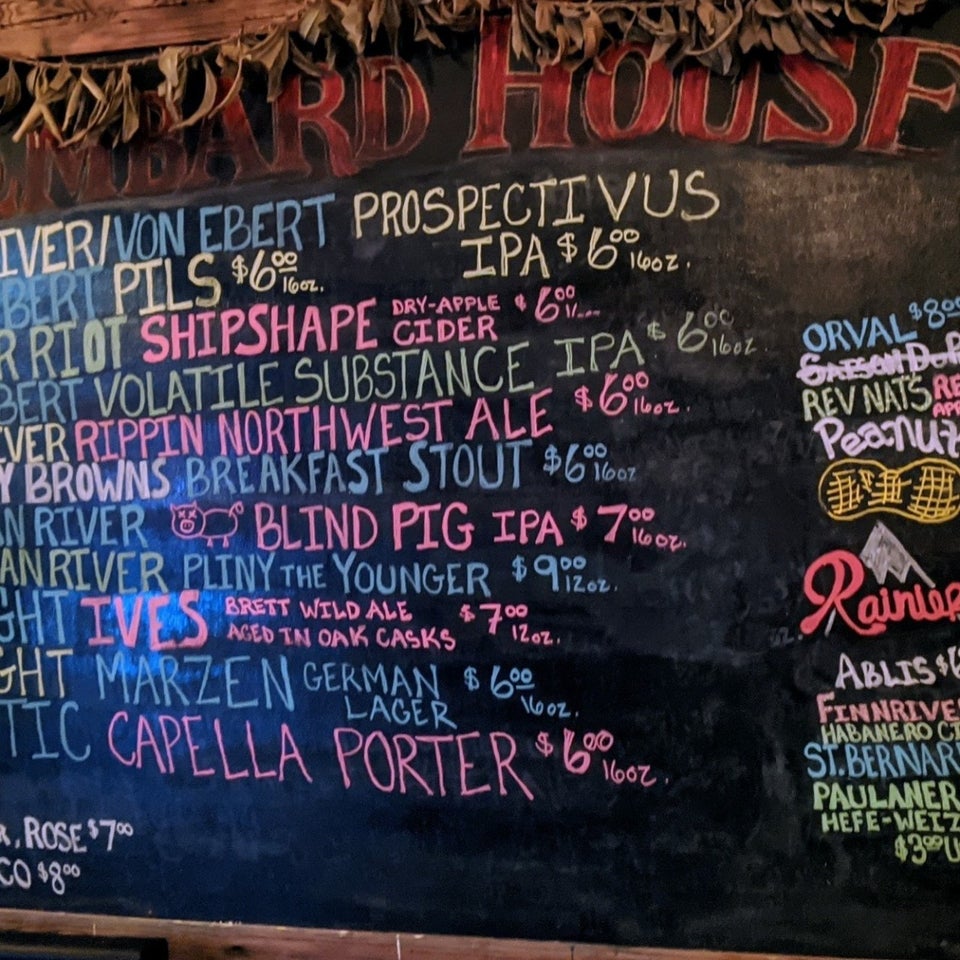 OMBARD HOUSE
IVER/VON EBERT PROSPECTIVUS
IPA $6.00 16oz.
BERT PILS $6.00 16oz.
R RIOT SHIPSHAPE DRY-APPLE CIDER $6.00
BERT VOLATILE SUBSTANCE IPA $6.00 16oz.
IVER RIPPIN NORTHWEST ALE $6.00 16oz.
Y BROWNS BREAKFAST STOUT $6.00 16oz
AN RIVER BLIND PIG IPA $7.00 16oz.
AN RIVER PLINY THE YOUNGER $9.00 12oz.
GHT IVES BRETT WILD ALE AGED IN OAK CASKS $7.00 12oz.
GHT MARZEN GERMAN LAGER $6.00 16oz.
TIC CAPELLA PORTER $6.00 16oz.
R, ROSE $7.00
CO $8.00
ORVAL $8.00
SAISON DUP
REV NATS RE
APP
PEANUT
Rainier
ABLIS $6
FINNRIVE
HABANERO CI
ST. BERNAR
PAULANER
HEFE-WEIZ
$3.00 U